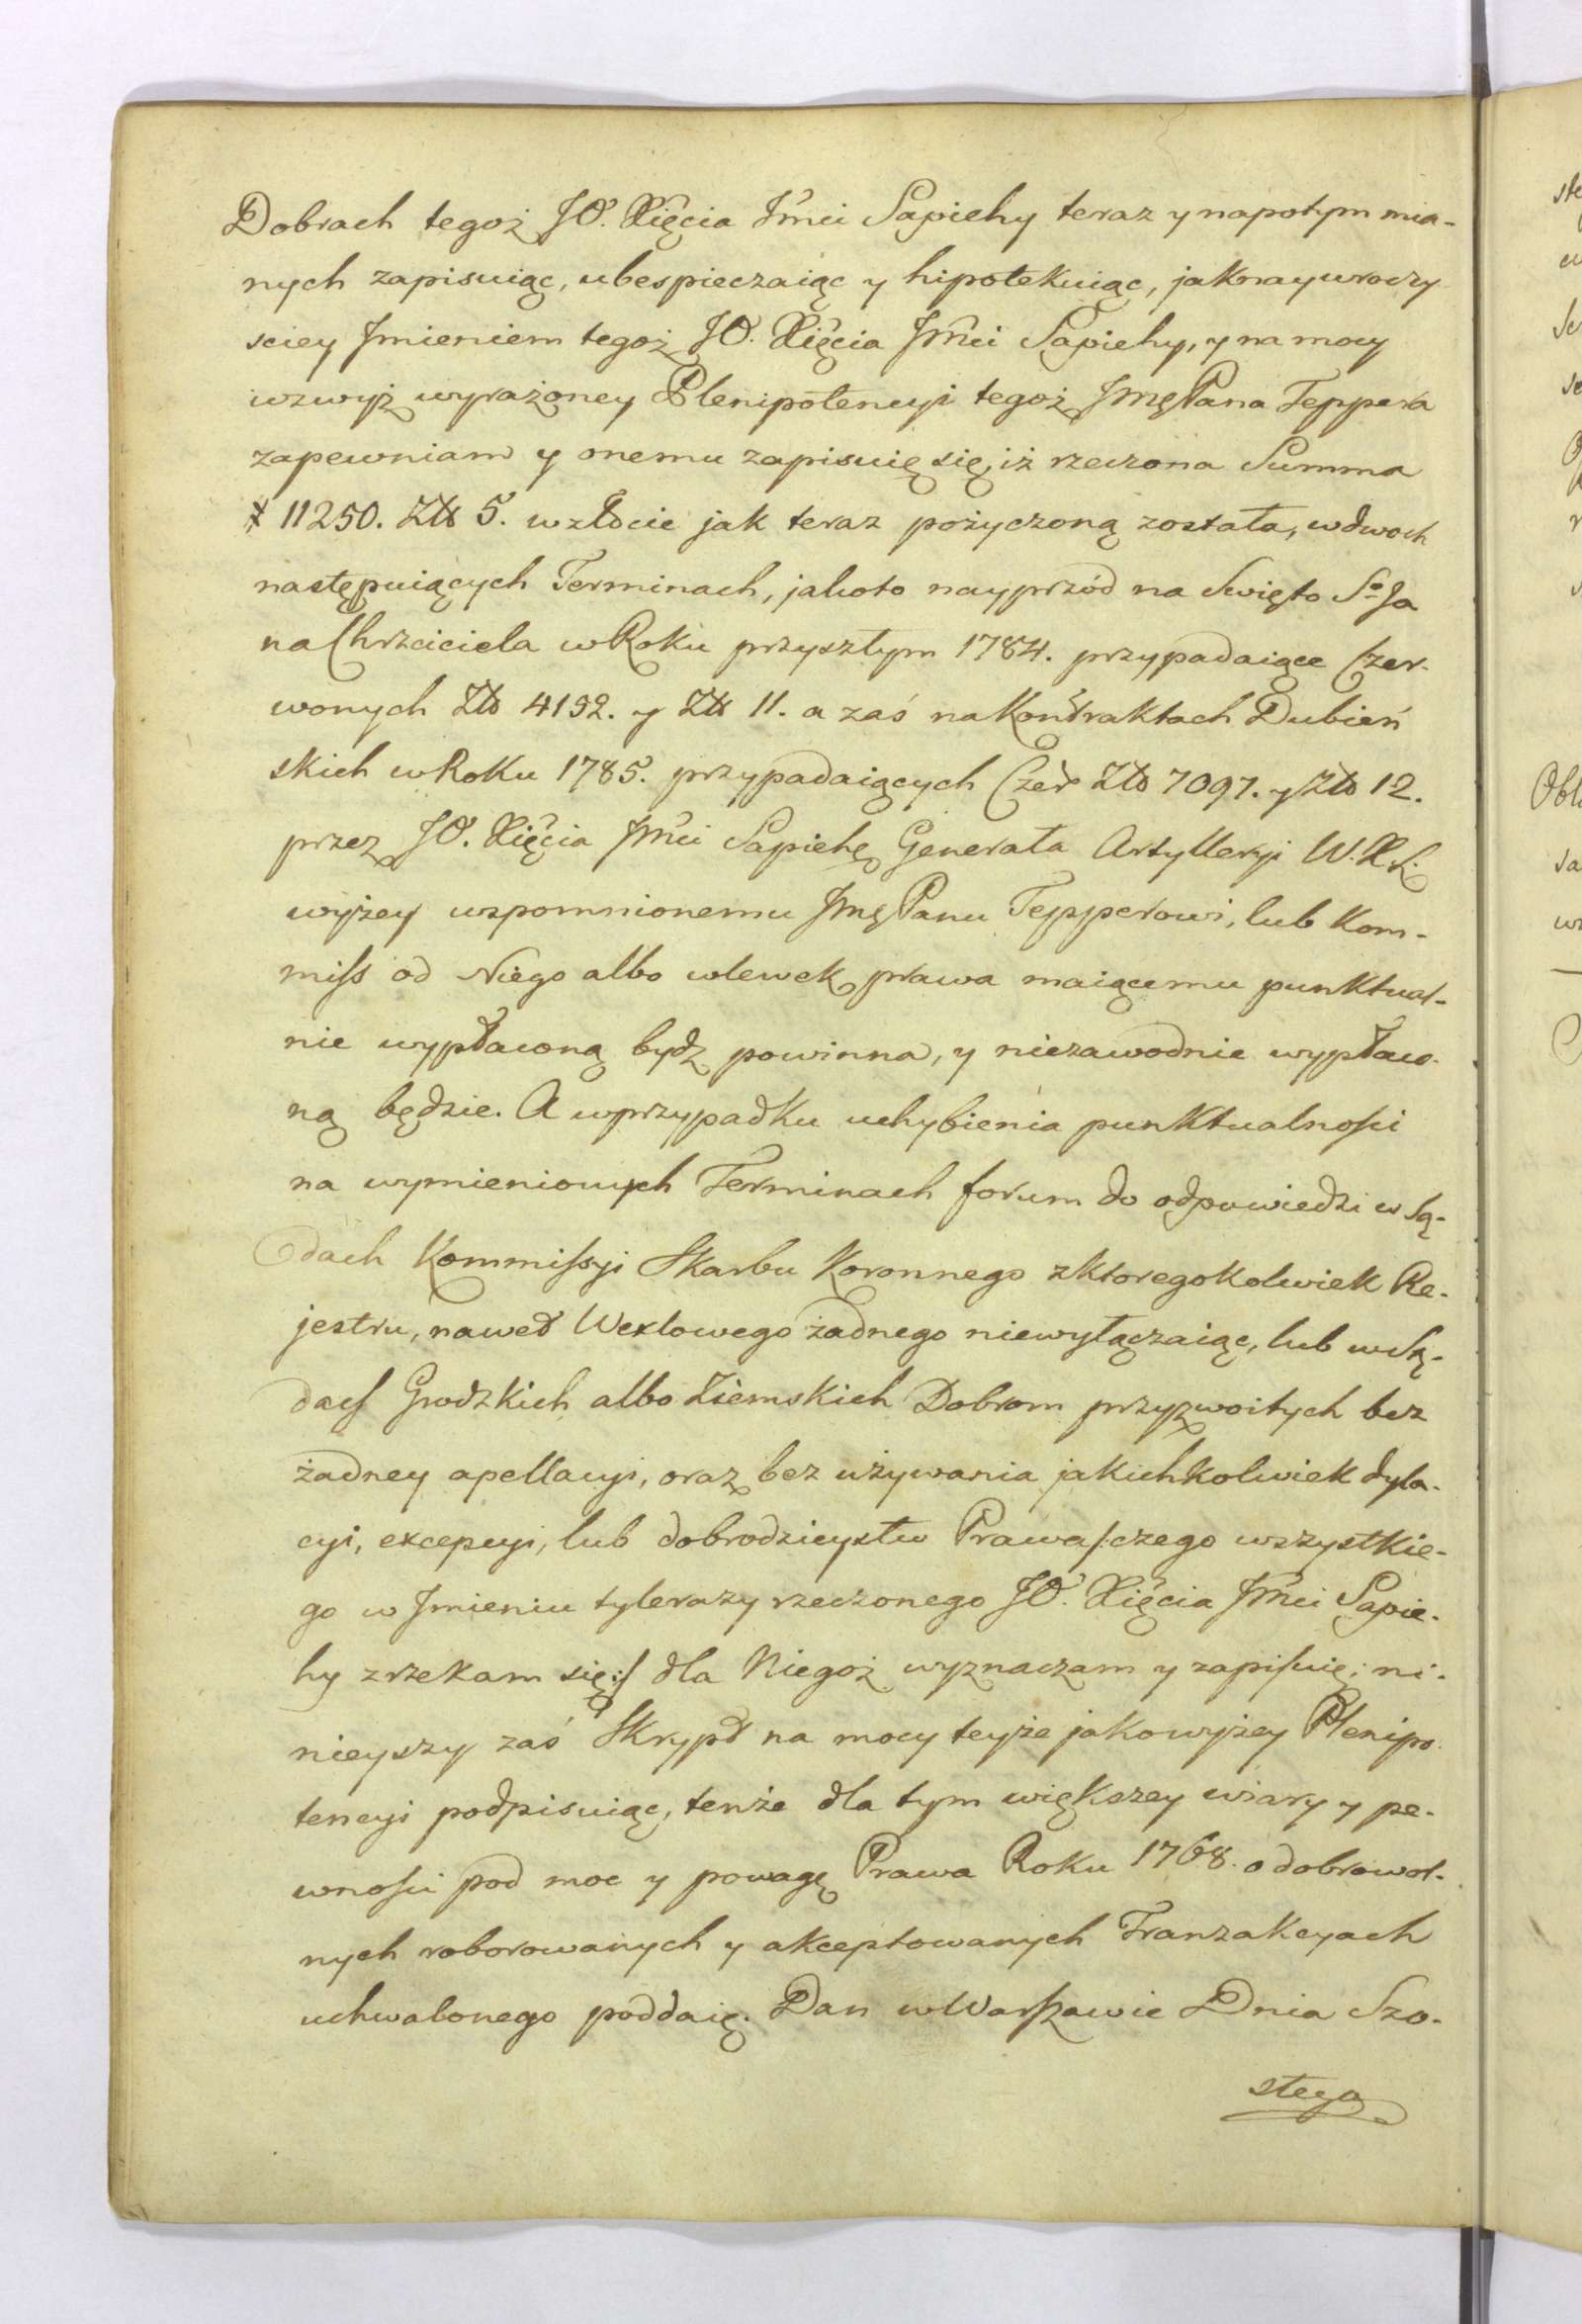 Dobrach tegoż JO. Xięcia Jmci Sapiehy teraz y napotym mia-
nych zapisuiąc, ubespieczaiąc y hipotekuiąc, jaknayuroczy
sciey Jmieniem tegoż JO. Xięcia Jmci Sapiehy, y na mocy
wzwyż wyrażoney Plenipotencyi tegoż JmęPana Teppera
zapewniam y onemu zapisuię się, iż rzeczona Summa
# 11250. Złł 5. wzłocie jak teraz pożyczoną została, wdwoch
następuiących Terminach, jakoto nayprzód na Swięto So Ja
na Chrzciciela wRoku przyszłym 1784. przypadaiące Czer-
wonych Złł 4152. y Złł 11. a zaś naKontraktach Dubień
skich wRoku 1785. przypadaiących Czer Złł 7097. y Złł 12.
przez JO. Xięcia Jmci Sapiehę Generała Artylleryi W.X.L.
wyżey wspomnionemu JmęPanu Tepperowi, lub Kom-
miss od Niego albo wlewek prawa maiącemu punktual-
nie wypłaconą bydz powinna, y niezawodnie wypłaco-
ną będzie. A wprzypadku uchybienia punktualności
na wymienionych Terminach forum do odpowiedzi w Są-
dach Kommissyi Skarbu Koronnego zktoregokolwiek Re-
jestru, nawet Wexlowego żadnego niewyłączaiąc, lub wSą-
dach Grodzkich albo Ziemskich Dobrom przyzwoitych bez
żadney apellacyi, oraz bez używania jakichkolwiek dyla-
cyi, excepcyi, lub dobrodzieystw Prawa /:czego wszystkie-
go w Jmieniu tylerazy rzeczonego JO. Xięcia Jmci Sapie-
hy zrzekam się:/ dla Niegoż wyznaczam y zapisuię; ni-
nieyszy zaś Skrypt na mocy teyże jakowyżey Plenipo
tencyi podpisuiąc, tenże dla tym większey wiary y pe-
wności pod moc y powagę Prawa Roku 1768. o dobrowol-
nych roborowanych y akceptowanych Tranzakcyach
uchwalonego poddaię. Dan wWarszawie Dnia Szo-
stego